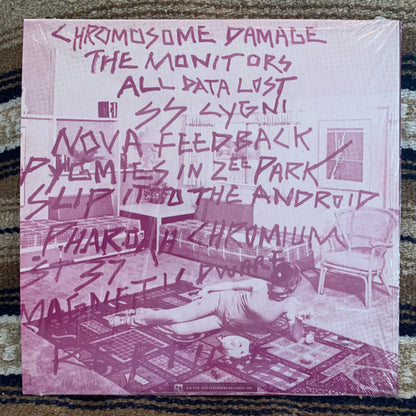 CHROMOSOME DAMAGE
THE MONITORS
ALL DATA LOST
SS CYGNI
NOVA FEEDBACK
PYGMIES IN ZEE PARK
SLIP IT TO THE ANDROID
PHAROAH CHROMIUM
ST 37
MAGNETIC DWARF